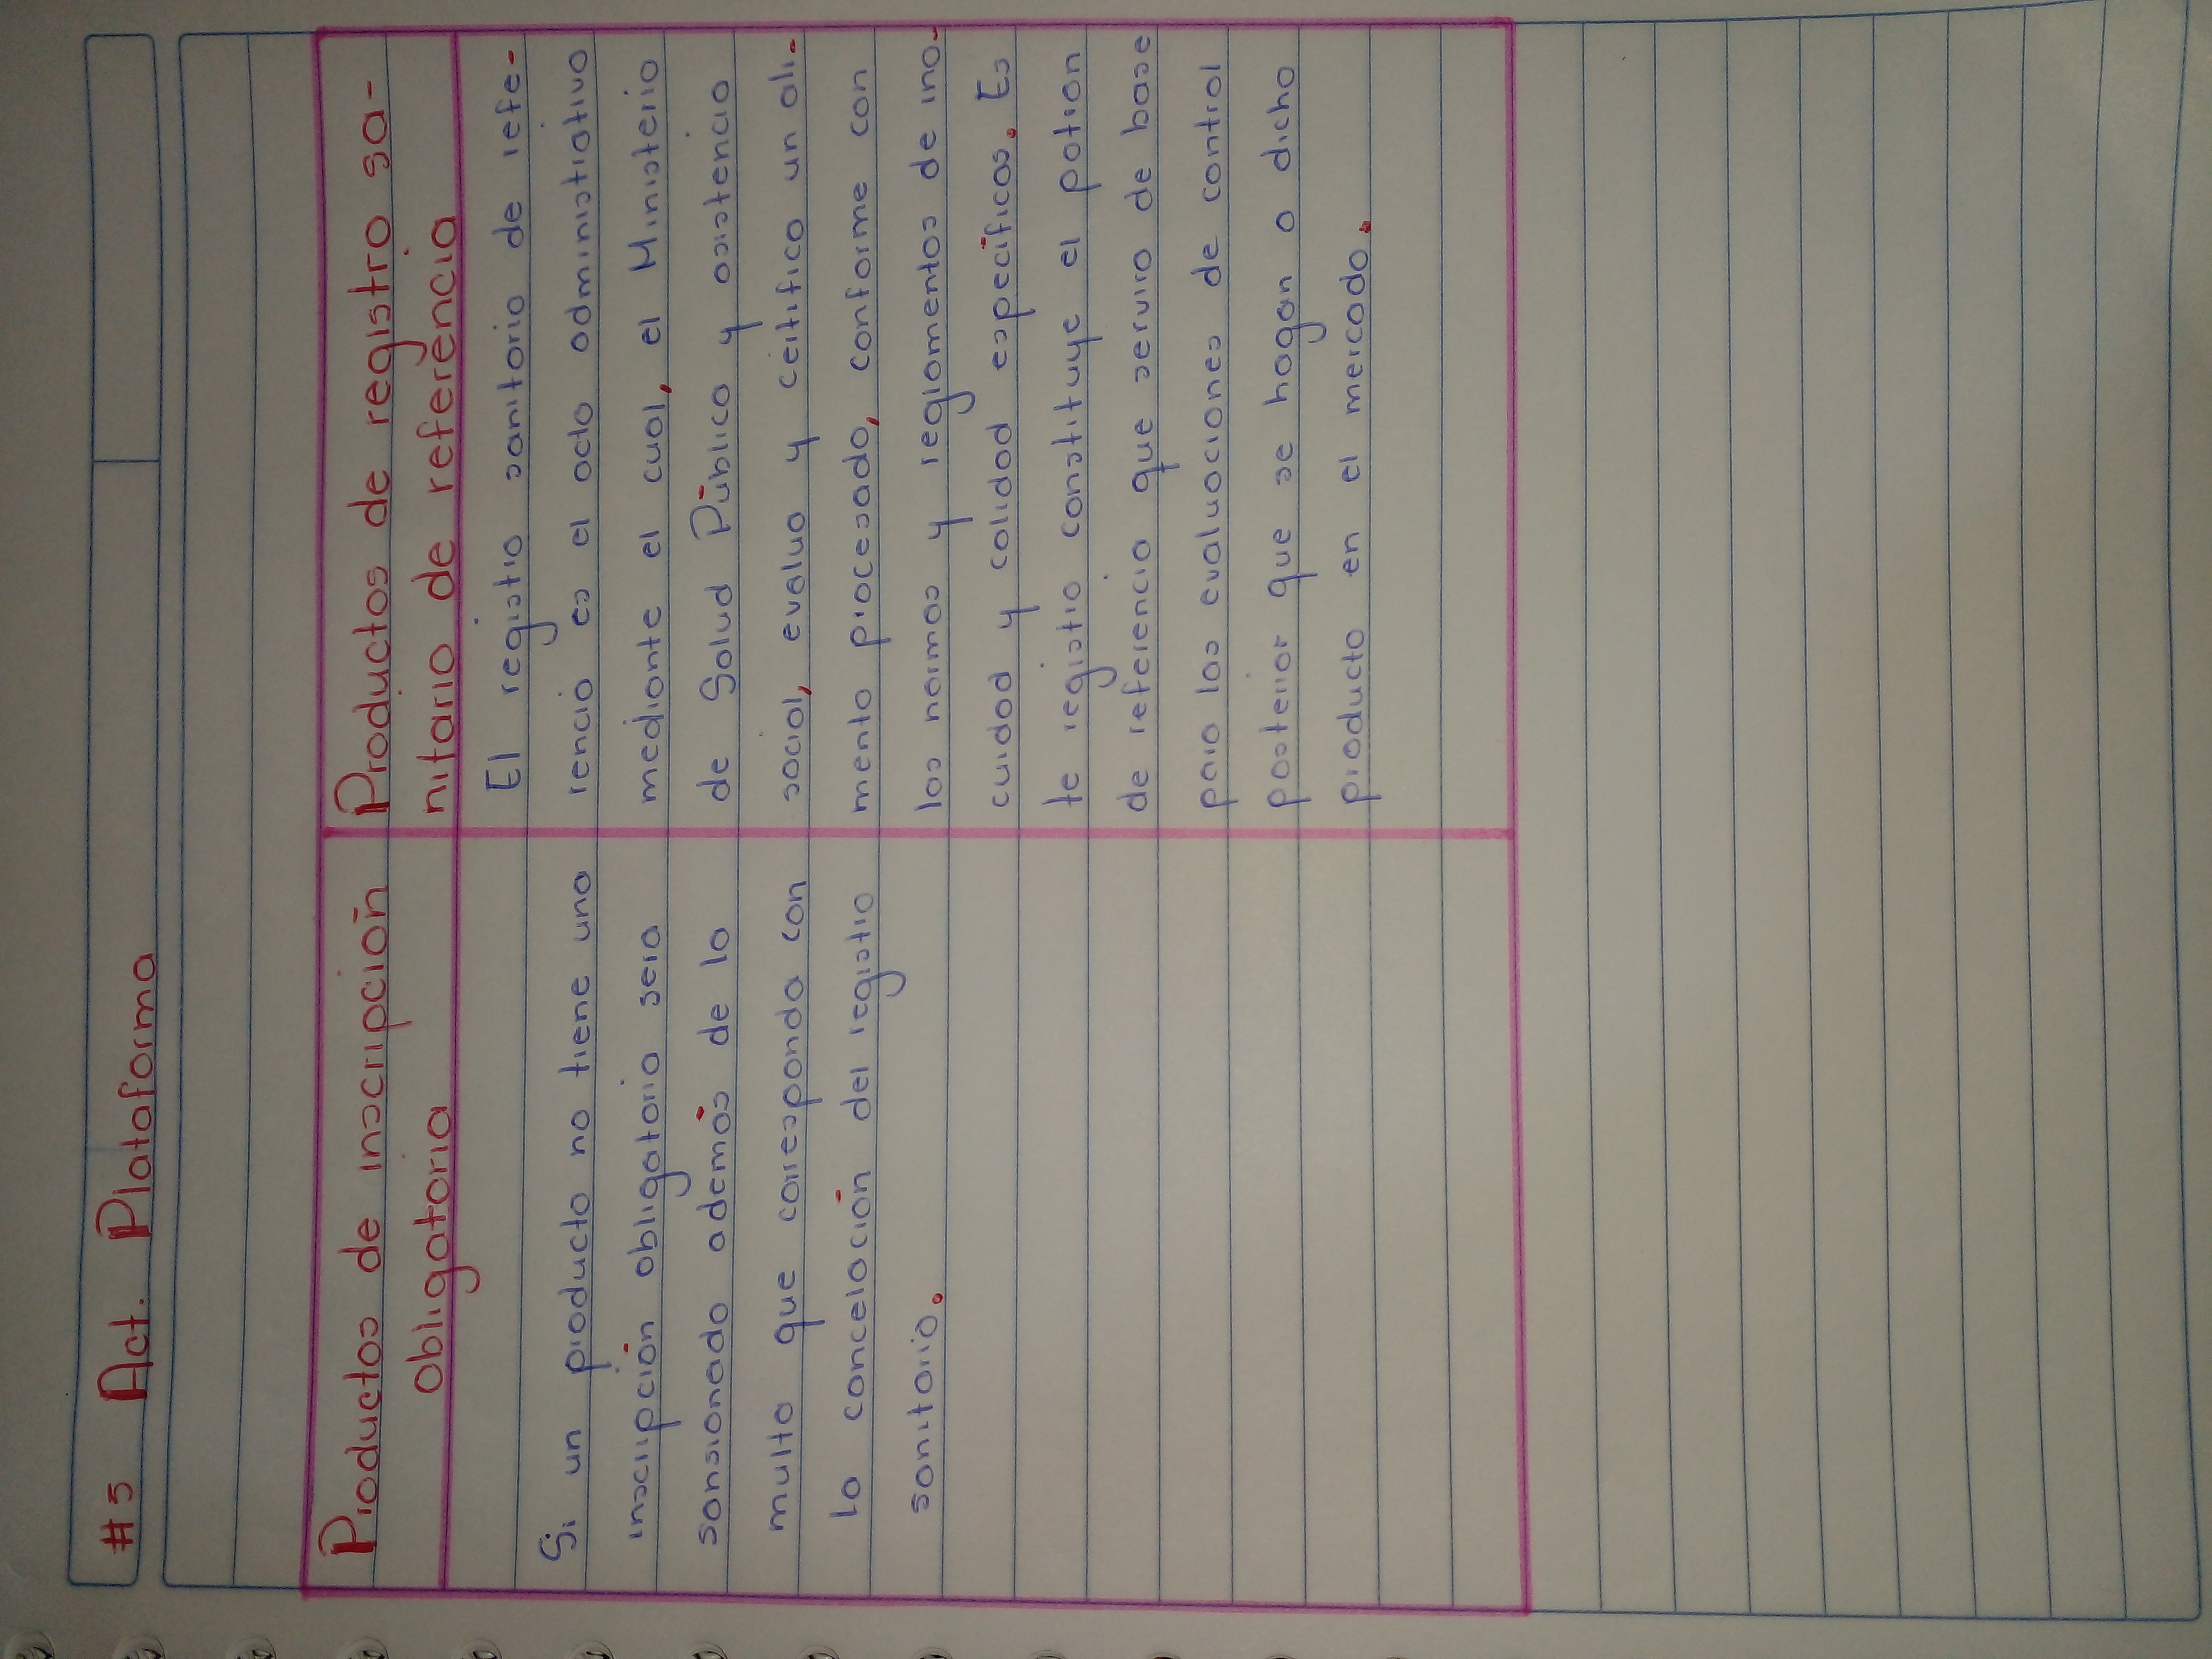 #5 Act. Plataforma
Productos de inscripción
obligatoria
Si un producto no tiene una
inscripción obligatorio sera
sansionado además de la
multa que corresponda con
la concelación del registro
sanitario.
Productos de registro sa-
nitario de referencia
El registro sanitario de refe-
rencia es el acto administrativo
mediante el cual, el Ministerio
de Salud Pública y asistencia
social, evalua y certifica un ali-
mento procesado, conforme con
las normas y reglamentos de ino-
cuidad y calidad específicos. Es
te registro constituye el patron
de referencia que servira de base
para las evaluaciones de control
posterior que se hagan a dicho
producto en el mercado.